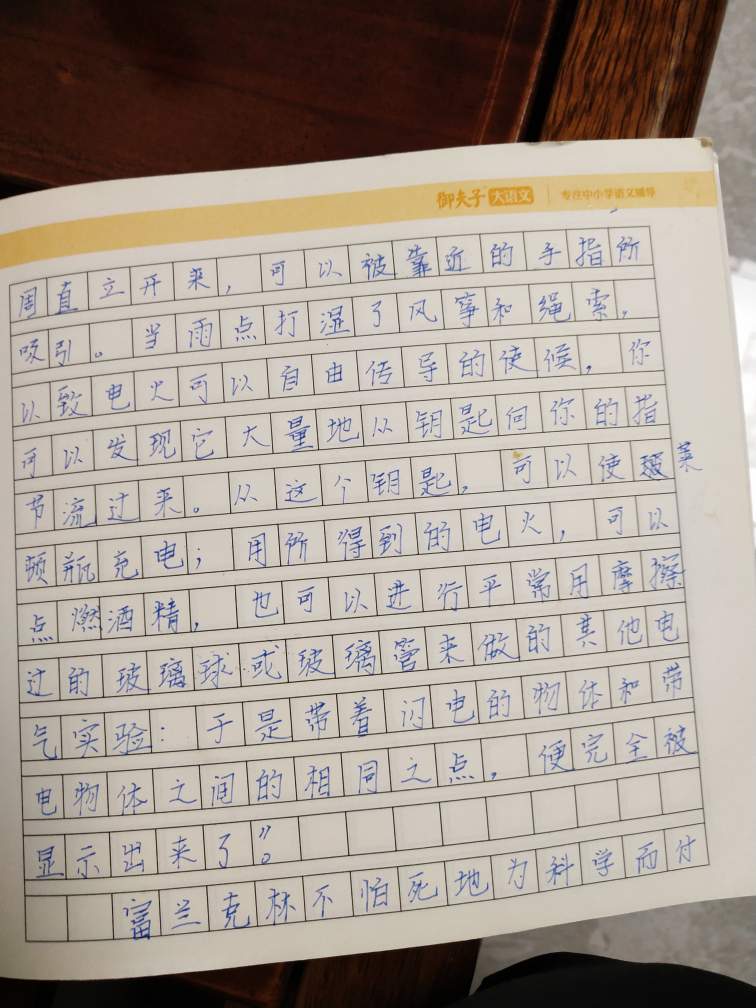 御夫子 大语文 | 专注中小学语文辅导
周直立开来，可以被靠近的手指所
吸引。当雨点打湿了风筝和绳索，
以致电火可以自由传导的使候，你
可以发现它大量地从钥匙向你的指
节流过来。从这个钥匙，可以使莱
顿瓶充电；用所得到的电火，可以
点燃酒精，也可以进行平常用摩擦
过的玻璃球或玻璃管来做的其他电
气实验：于是带着闪电的物体和带
电物体之间的相同之点，便完全被
显示出来了”。
富兰克林不怕死地为科学而付